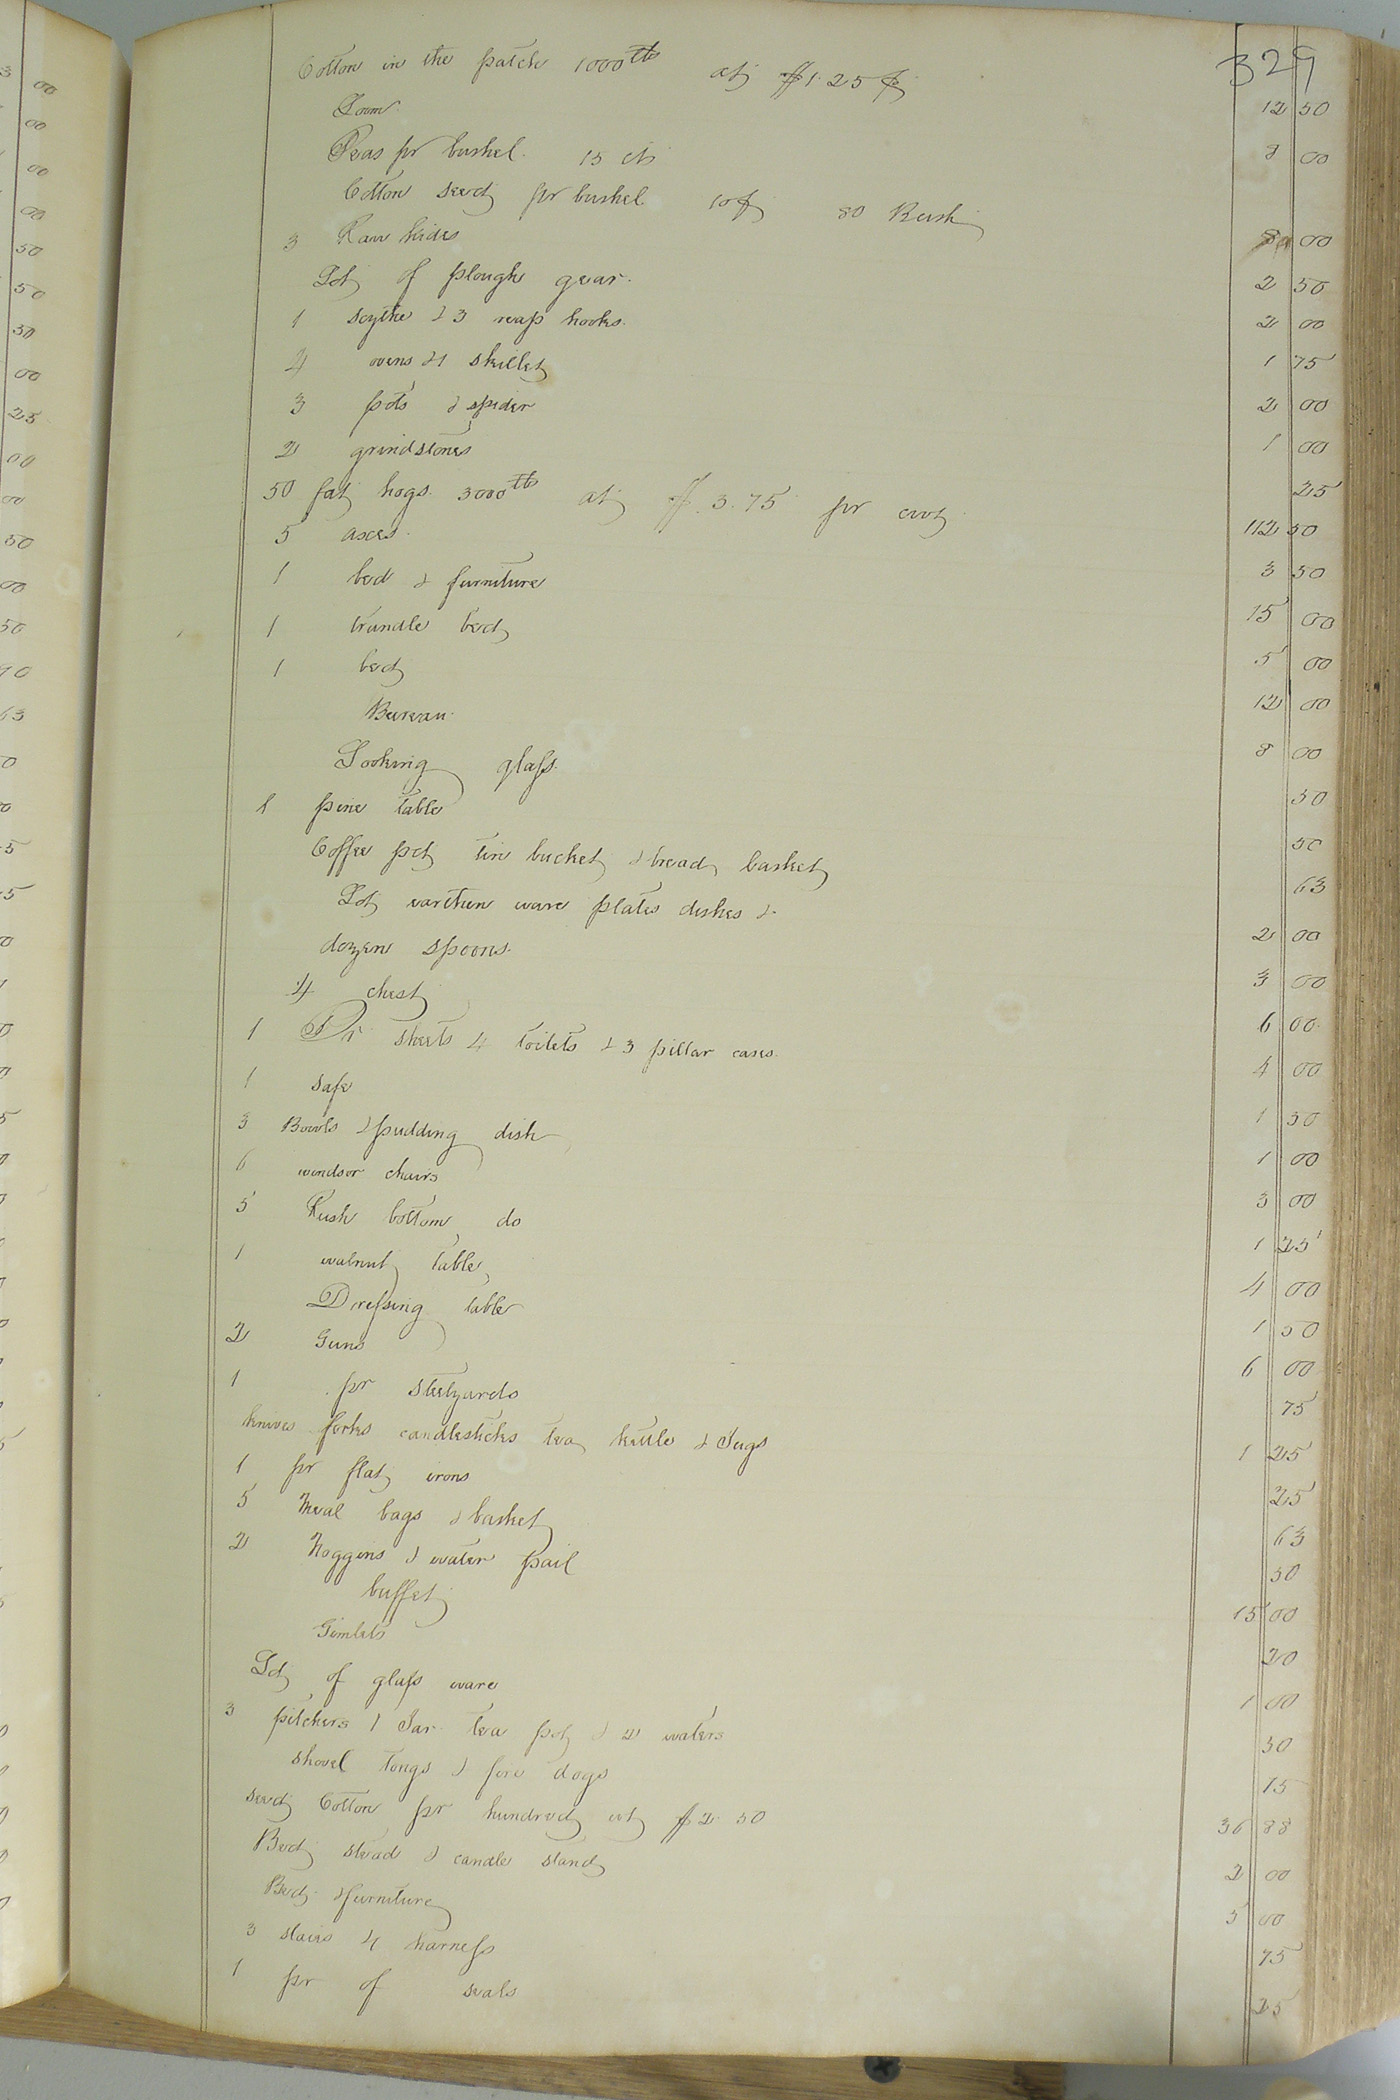 329
Cotton in the patch 1000lbs at $1.25 ¢ 12 50
Loom 8 00
Peas pr bushel 15 cts
Cotton seed pr bushel 10¢ 80 Bush 8 00
3 Raw hides 2 50
Lot of plough gear 2 00
1 scythe & 3 reap hooks 1 75
4 ovens & 1 skillet 2 00
3 pots & spider 1 00
2 grindstones 25
50 fat hogs 3000lbs at $3.75 pr cwt 112 50
5 axes 3 50
1 bed & furniture 15 00
1 trundle bed 5 00
1 bed 12 00
Bureau 8 00
Looking glass 50
1 pine table 50
Coffee pot tin bucket & bread basket 63
Lot earthen ware plates dishes & 2 00
dozen spoons 3 00
4 chest 6 00
1 Pr sheets 4 toilets & 3 pillar cases 4 00
1 safe 1 50
3 Bowls & pudding dish 1 00
6 windsor chairs 3 00
5 Rush bottom do 1 25
1 walnut table 4 00
Dressing table 1 50
2 Guns 6 00
1 pr steelyards 75
knives forks candlesticks tea kettle & Jugs 1 25
1 pr flat irons 25
5 Meal bags & basket 63
2 Noggins & water pail 50
buffet 15 00
Gimlets 20
Lot of glass ware 1 00
3 pitchers 1 Jar tea pot & 2 waters 50
shovel tongs & fire dogs 15
seed Cotton pr hundred wt $2.50 36 88
Bed stead & candle stand 2 00
Bed & furniture 5 00
3 slaies 4 harness 75
1 pr of seals 25